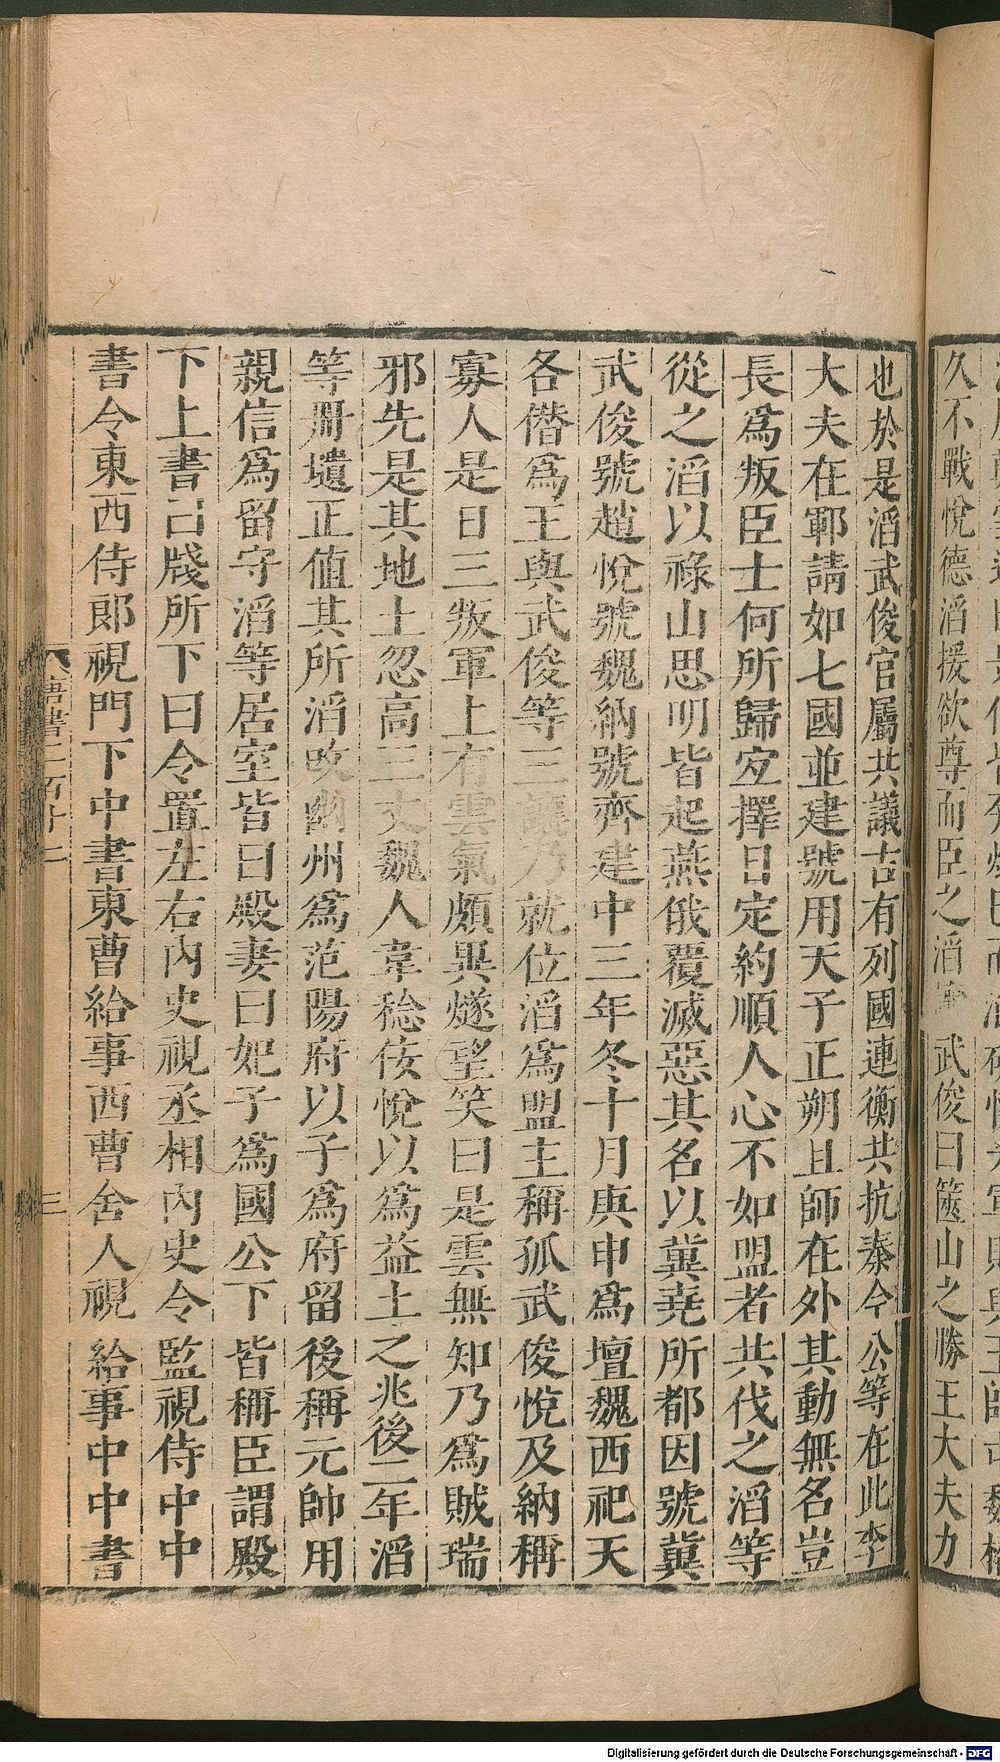 久不戰悅德滔援欲尊而臣之滔 武俊曰篋山之勝王大夫力
也於是滔武俊官屬共議古有列國連衡共抗秦今公等在此李
大夫在鄆請如七國並建號用天子正朔且師在外其動無名豈
長爲叛臣士何所歸宐擇日定約順人心不如盟者共伐之滔等
從之滔以祿山思明皆起燕俄覆滅惡其名以冀堯所都因號冀
武俊號趙悅號魏納號齊建中三年冬十月庚申爲壇魏西祀天
各僭爲王與武俊等三讓乃就位滔爲盟主稱孤武俊悅及納稱
寡人是日三叛軍上有雲氣頗異燧望笑曰是雲無知乃爲賊瑞
邪先是其地土忽高三丈魏人韋稔佞悅以爲益土之兆後二年滔
等冊壝正值其所滔改幽州爲范陽府以子爲府留後稱元帥用
親信爲留守滔等居室皆曰殿妻曰妃子爲國公下皆稱臣謂殿
下上書曰牋所下曰令置左右內史視丞相內史令監視侍中中
書令東西侍郎視門下中書東曹給事西曹舍人視給事中中書
唐書二百十二
三
Digitalisierung gefördert durch die Deutsche Forschungsgemeinschaft - DFG